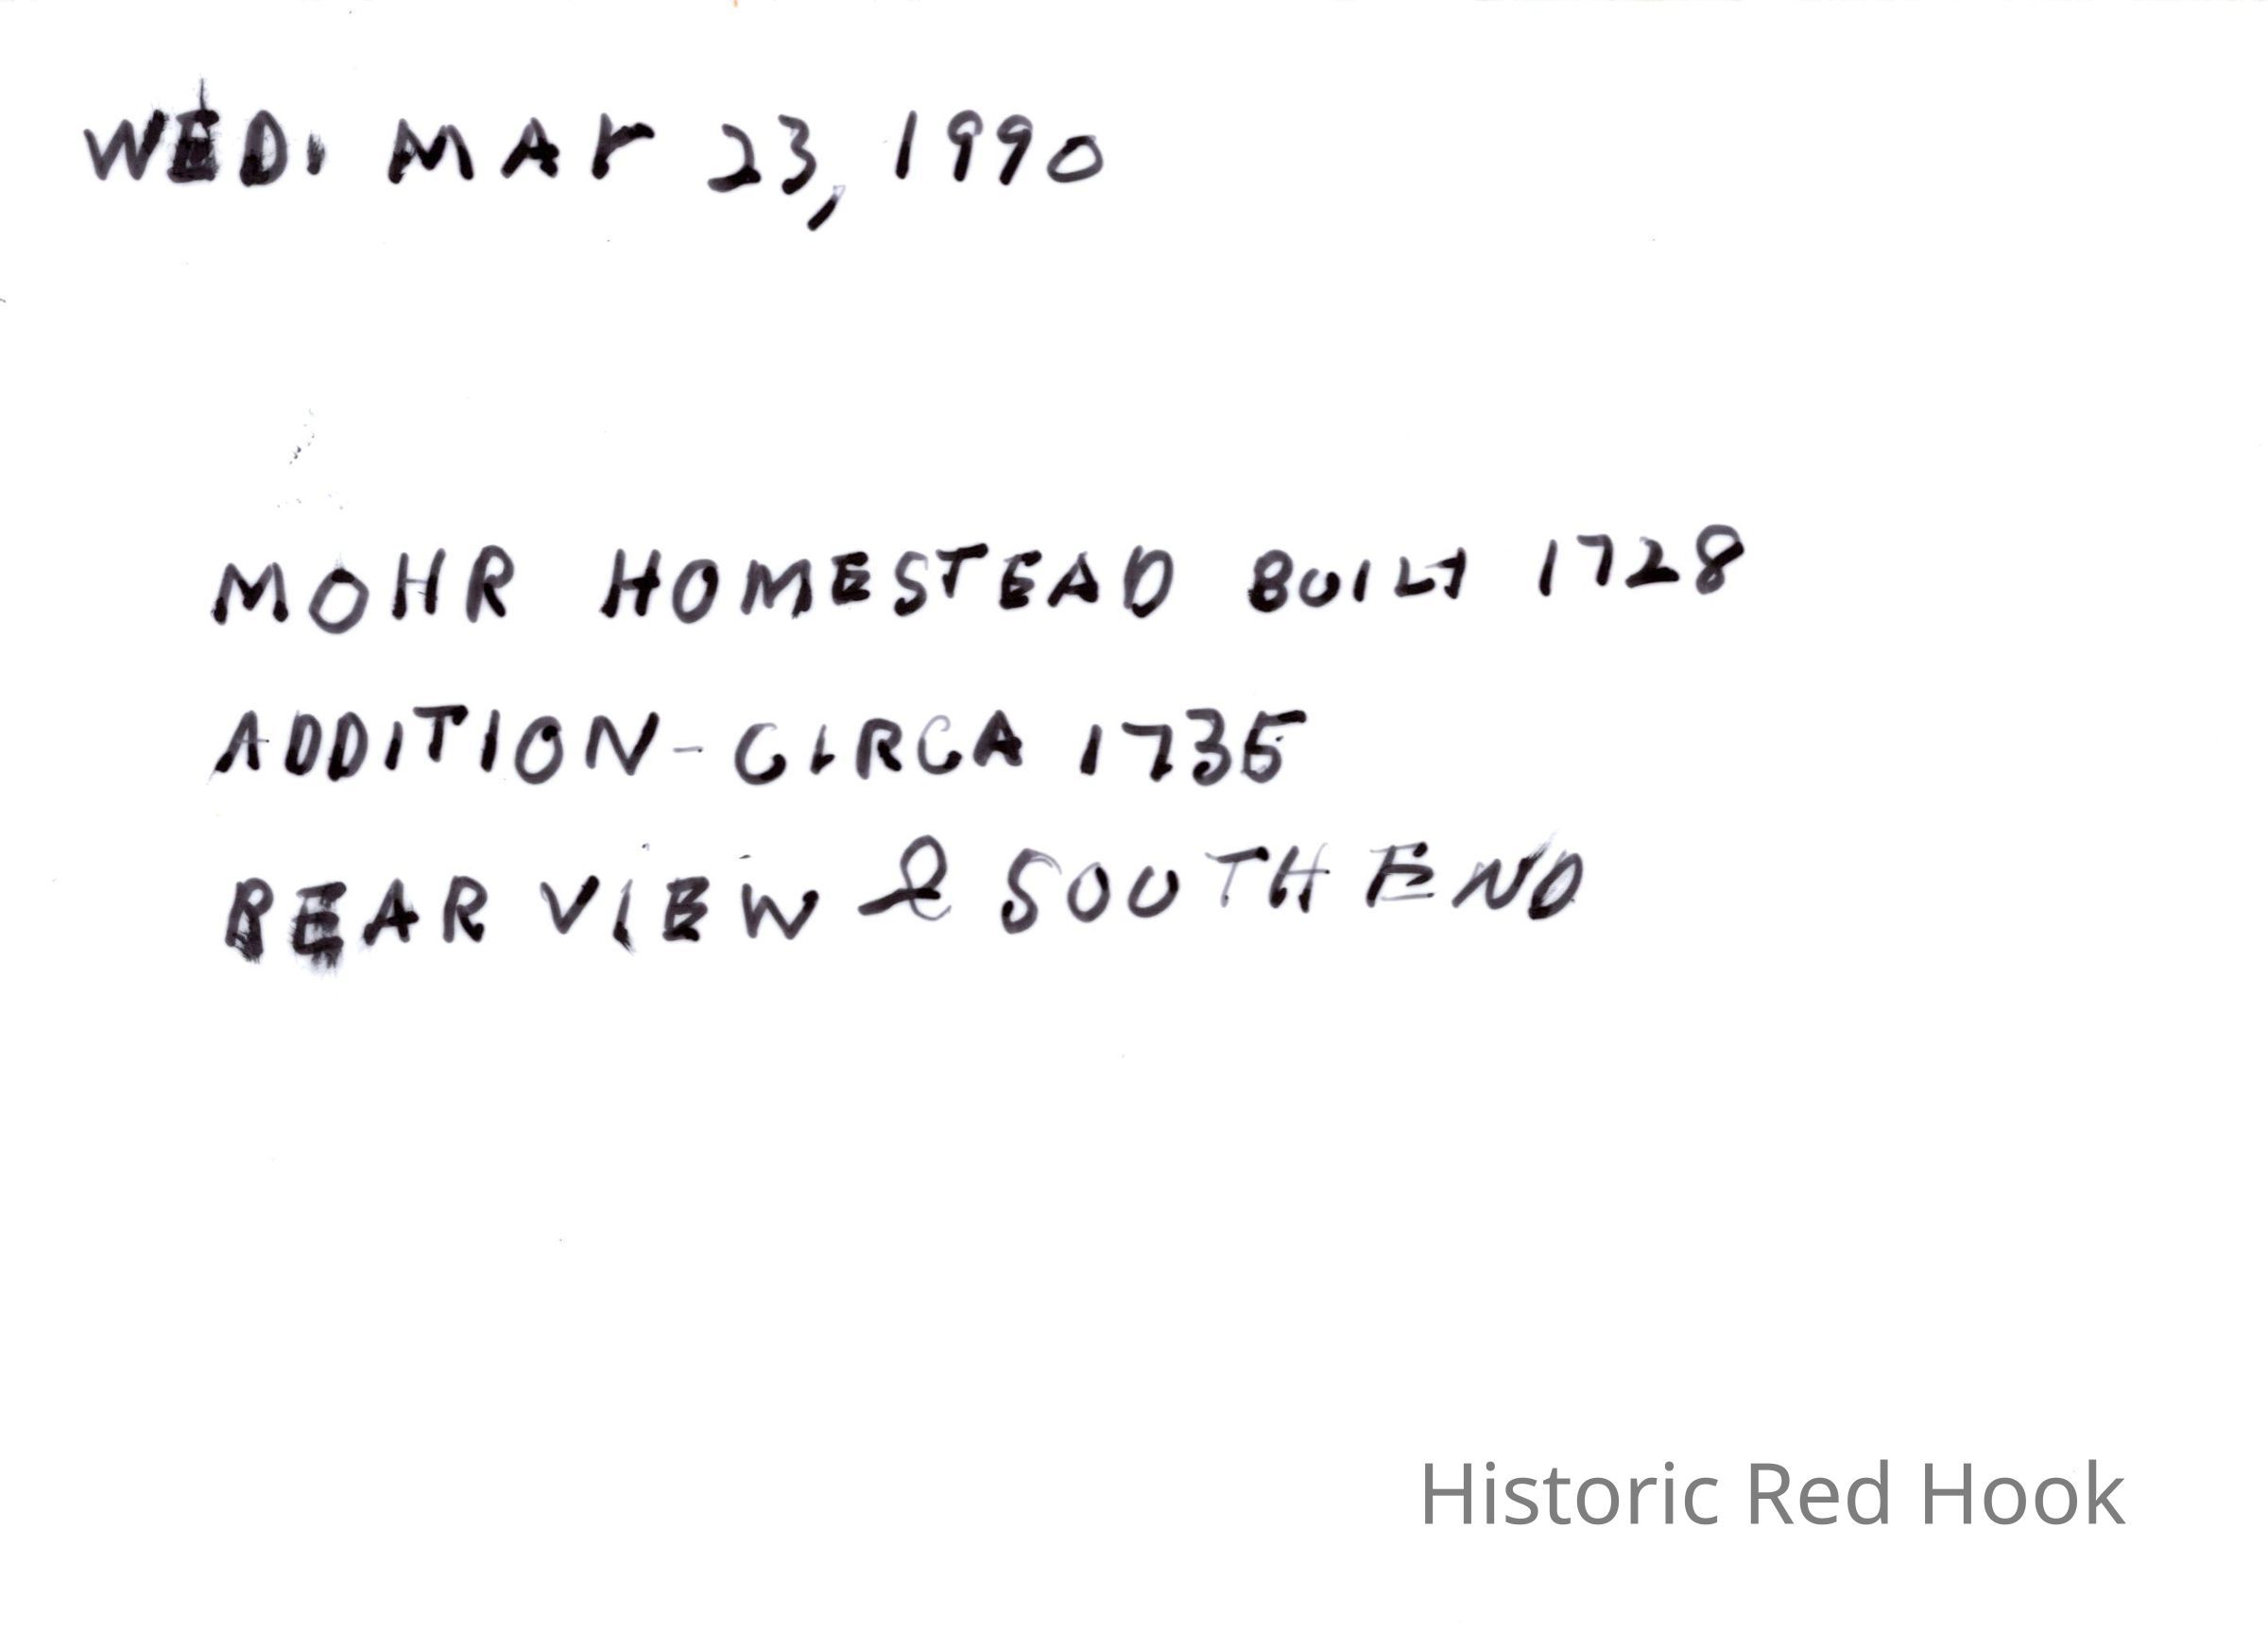 WED. MAY 23, 1990
MOHR HOMESTEAD BUILT 1728
ADDITION - CIRCA 1735
REAR VIEW & SOUTH END
Historic Red Hook